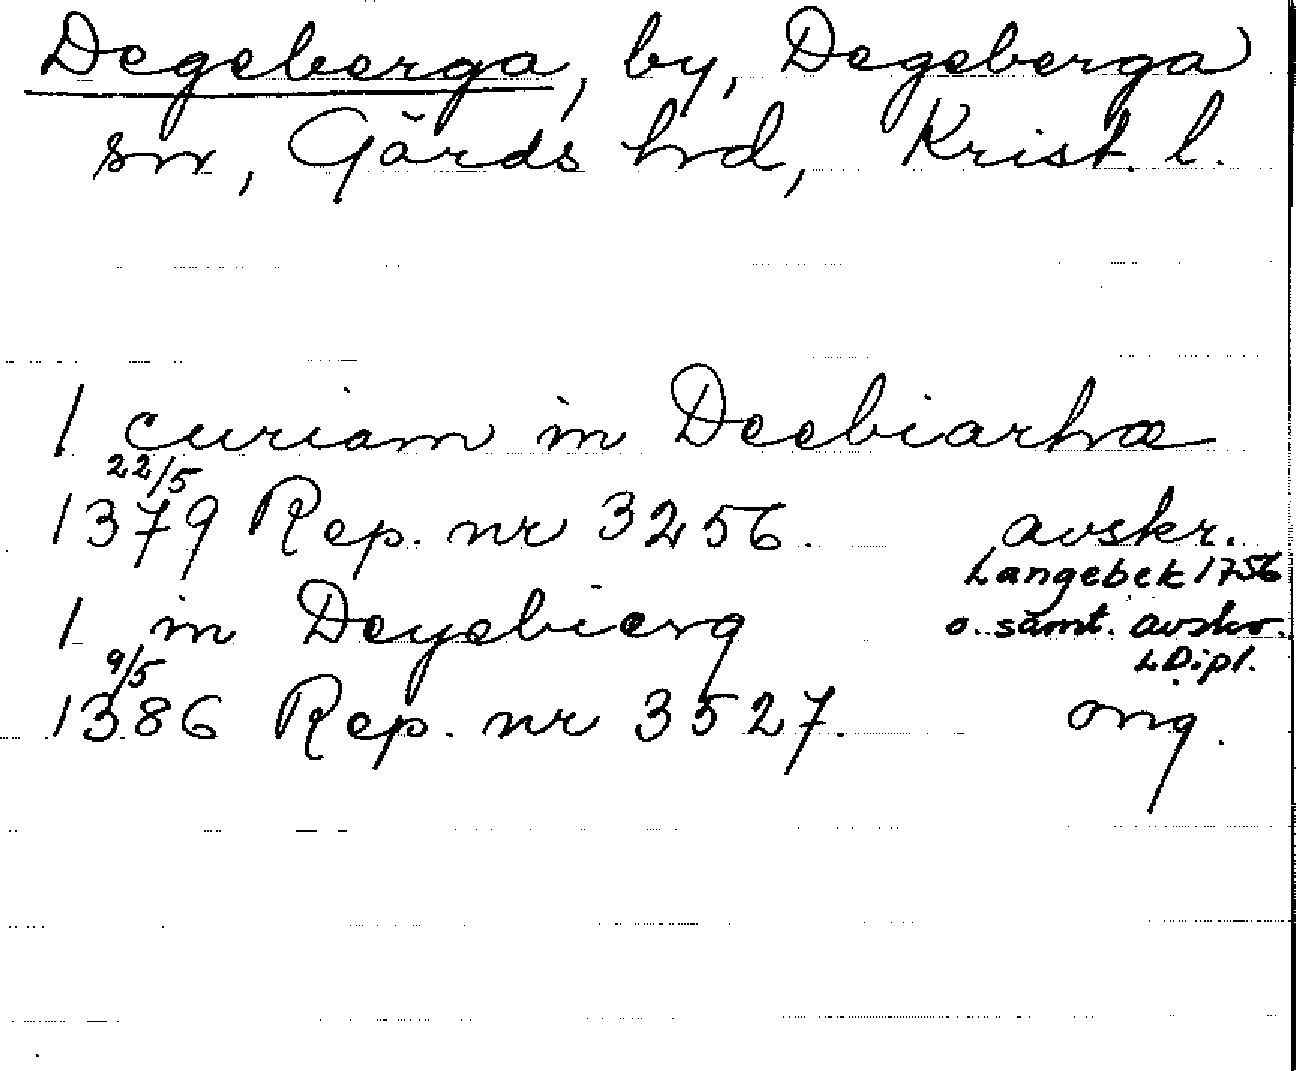 Degeberga, by, Degeberga
sn, Gärds hrd, Krist. l.
1 curiam in Deebiarhæ
22/5
1379 Rep. nr 3256. avskr.
Langebek 1756
1 in Deyebierg o. samt. avskr.
9/5 LDipl.
1386 Rep. nr 3527. orig.